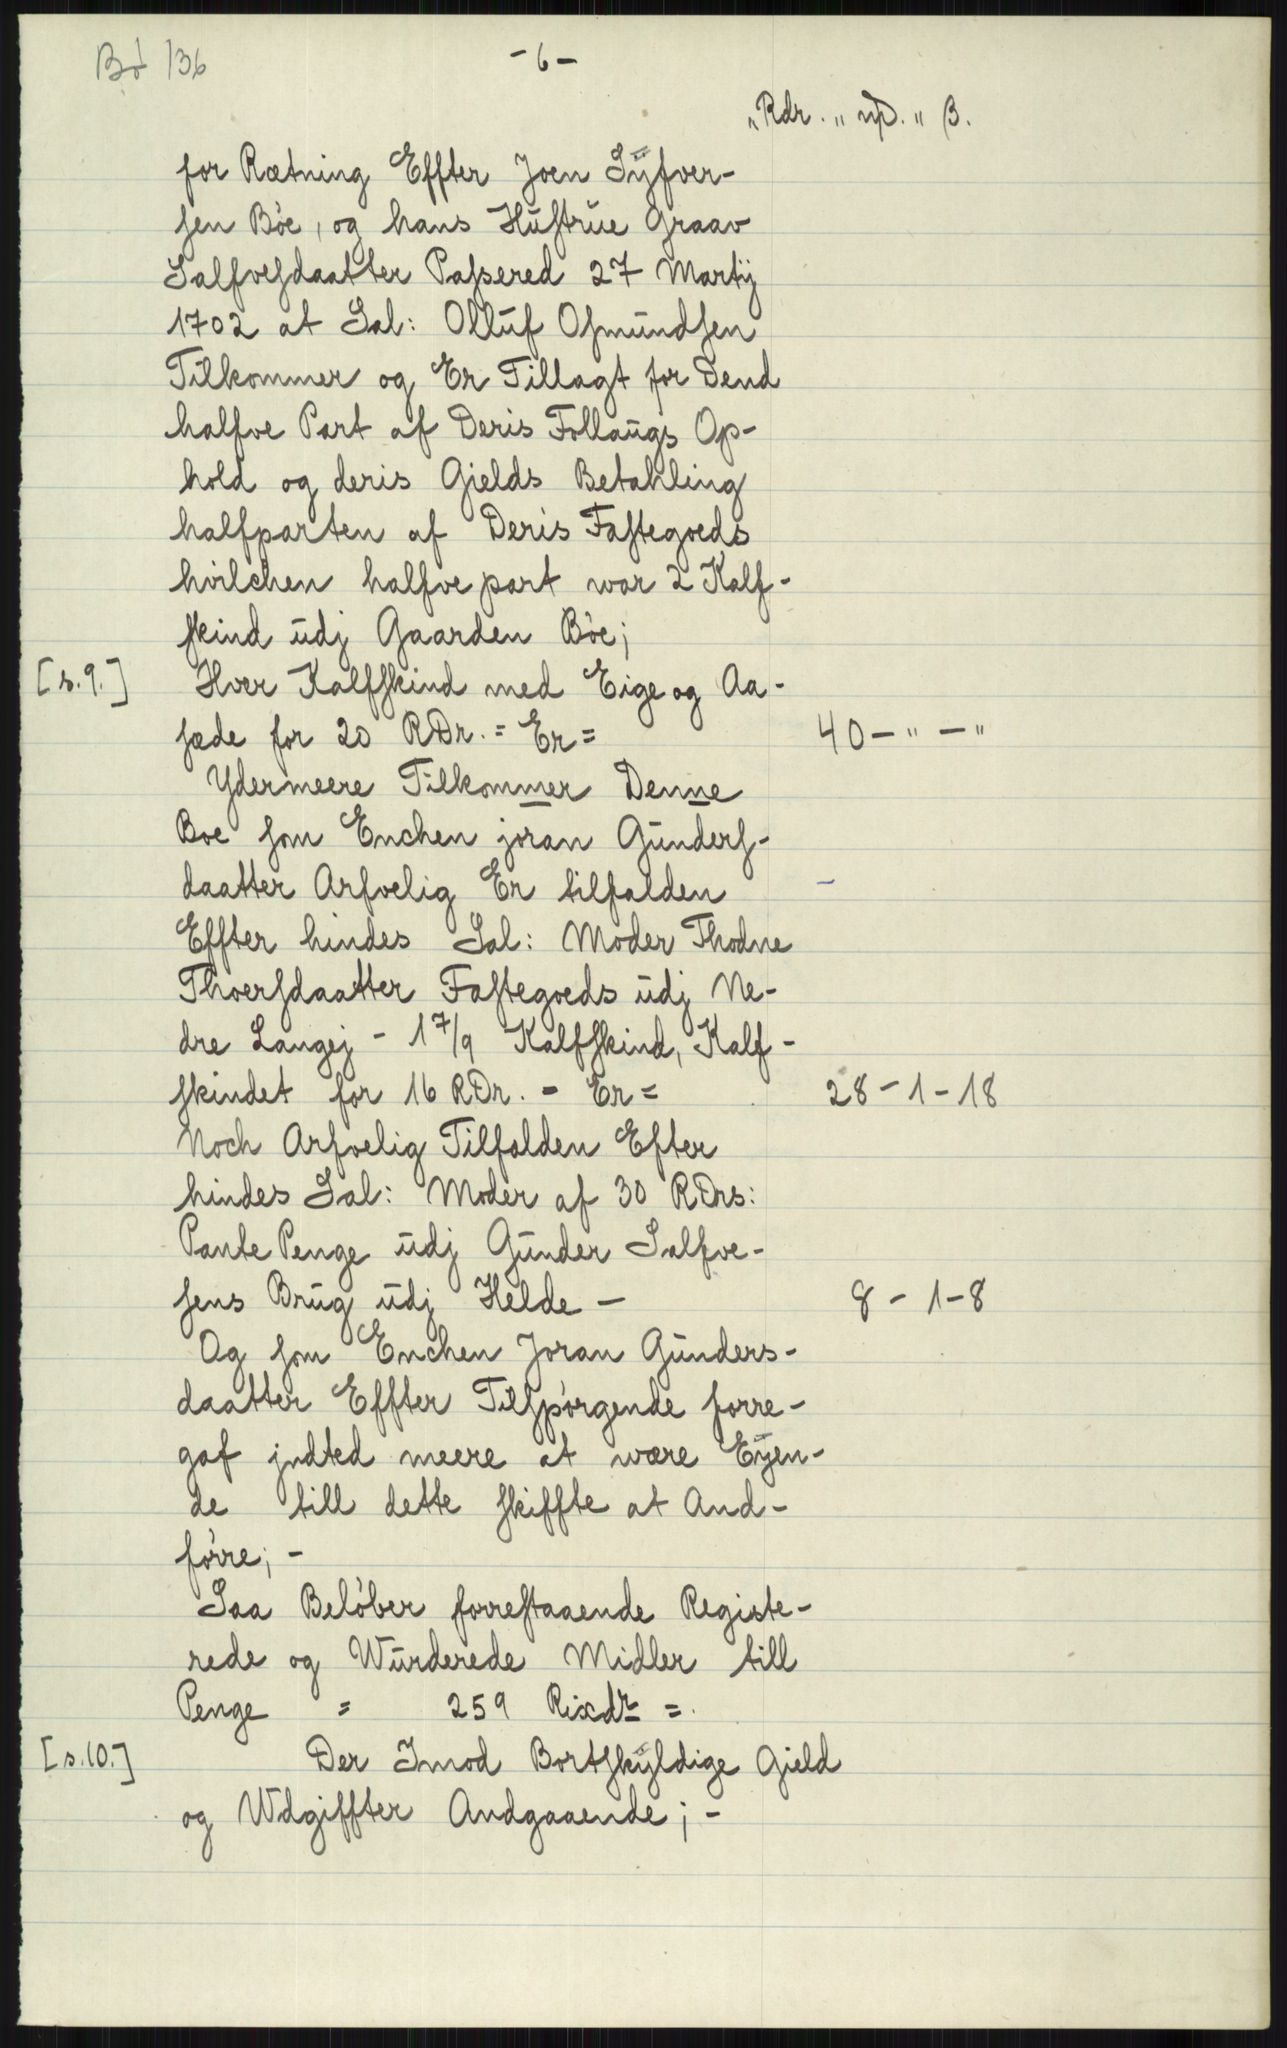 Bö 136
- 6 -
"Rdr." mþ." β.
for Rætning Effter Joen Sÿfver-
sen Böe, og hans Hustrue Graav
Salfvesdaatter Passered 27 Martij
1702 at Sal: Olluf Osmundsen
Tilkommer og Er Tillagt for Dend
halfve Part af Deris Follaugs Op-
hold og deris Gields Betahling
halfparten af Deris Fastegoeds
hvilchen halfve part war 2 Kalf-
skind udj Gaarden Böe;
[s. 9.] Hver Kalfskind med Eige og Aa-
sæde for 20 RDr. = Er = 40 - " - "
Ydermeere Tilkommer Denne
Boe som Enchen joran Gunders-
daatter Arfvelig Er tilfalden -
Effter hindes Sal: Moder Thodne
Thoersdaatter Fastegoeds udj Ne-
dre Langej - 1 7/9 Kalfskind, Kalf-
skindet for 16 RDr. = Er = 28 - 1 - 18
Noch Arfvelig Tilfalden Efter
hindes Sal: Moder af 30 RDrs:
Pante Penge udj Gunder Salfve-
sens Brug udj Helde - 8 - 1 - 8
Og som Enchen Joran Gunders-
daatter Effter Tilspörgende forre-
gaf jndted meere at wære Eÿen-
de till dette skiffte at And-
förre; -
Saa Belöber forrestaaende Registe-
rede og Wurderede Midler till
Penge = 259 Rixdr =.
[s. 10.] Der Imod Bortskÿldige Gield
og Wdgiffter Andgaaende; -